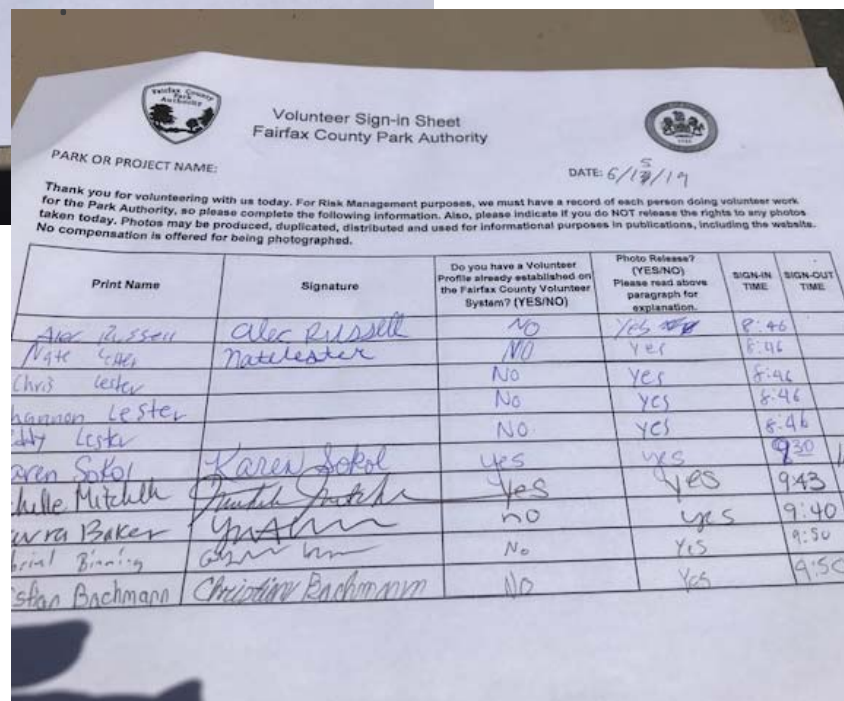 Fairfax County
Park
Authority
Volunteer Sign-in Sheet
Fairfax County Park Authority
PARK OR PROJECT NAME:
DATE: 6/15/19
Thank you for volunteering with us today. For Risk Management purposes, we must have a record of each person doing volunteer work
for the Park Authority, so please complete the following information. Also, please indicate if you do NOT release the rights to any photos
taken today. Photos may be produced, duplicated, distributed and used for informational purposes in publications, including the website.
No compensation is offered for being photographed.
Print Name Signature Do you have a Volunteer Profile already established on the Fairfax County Volunteer System? (YES/NO) Photo Release? (YES/NO) Please read above paragraph for explanation. SIGN-IN TIME SIGN-OUT TIME
Alec Russell alec Russell NO Yes 8:46
Nate Lester nate lester NO Yes 8:46
Chris Lester No Yes 8:46
hannon Lester No yes 8:46
ddy Lester NO yes 8:46
aren Sokol Karen Sokol yes yes 930
chelle Mitchell Yes Yes 9:43
Baker no yes 9:40
No Yes 9:50
stian Bachmann Christian Bachmann NO Yes 9:50